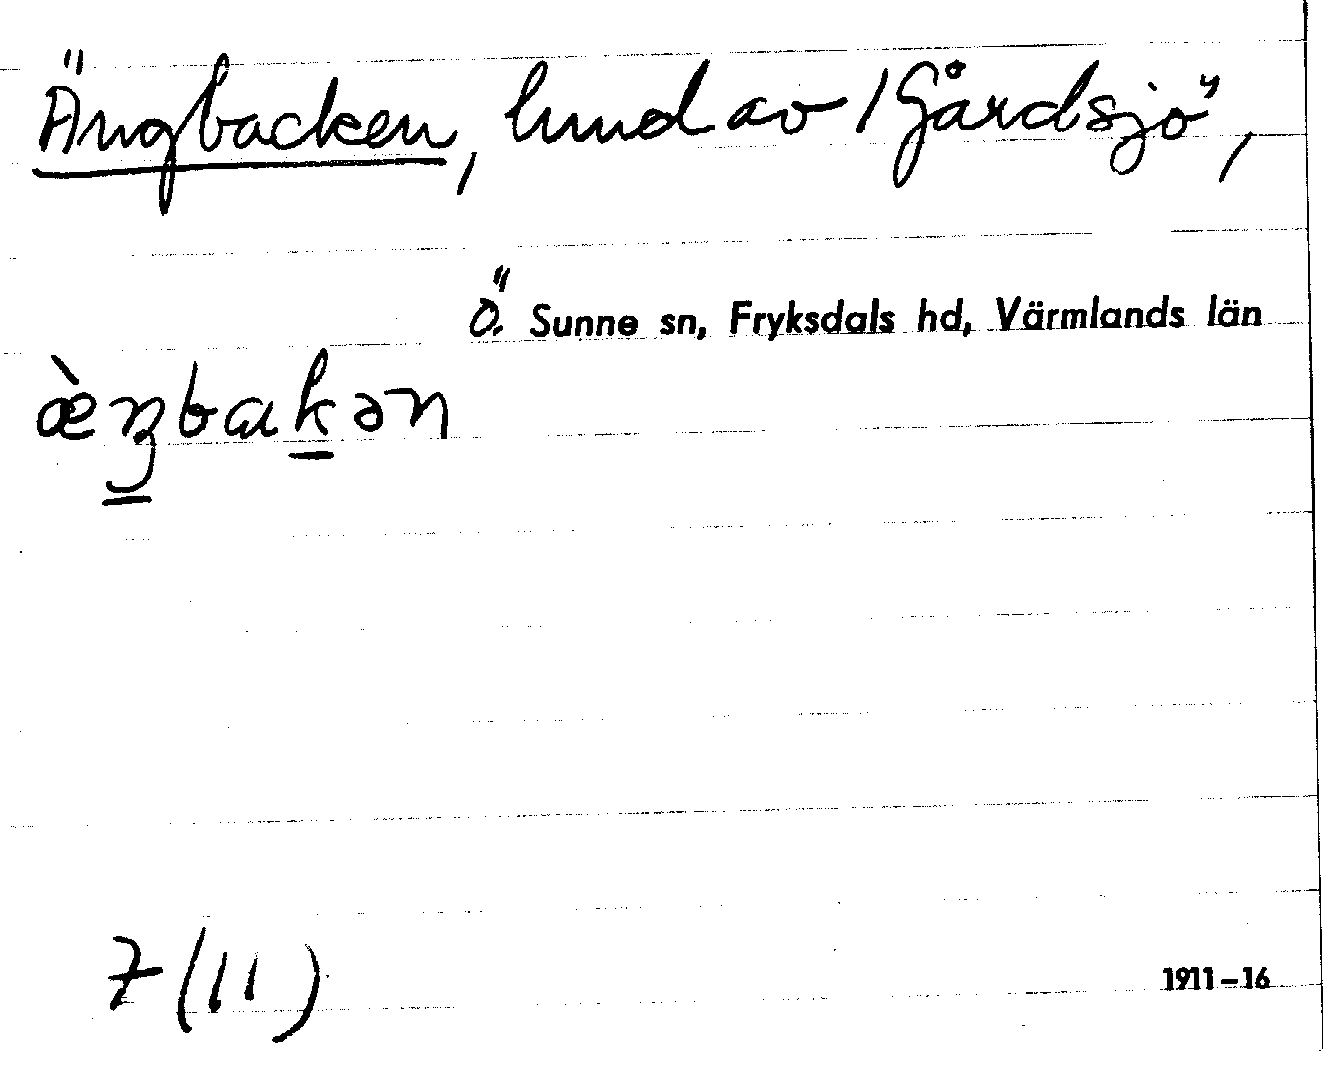 Ängbacken, hmd av 1 Gårdsjö,
Ö. Sunne sn, Fryksdals hd, Värmlands län
æ̀ŋbakən
7 (11)
1911–16